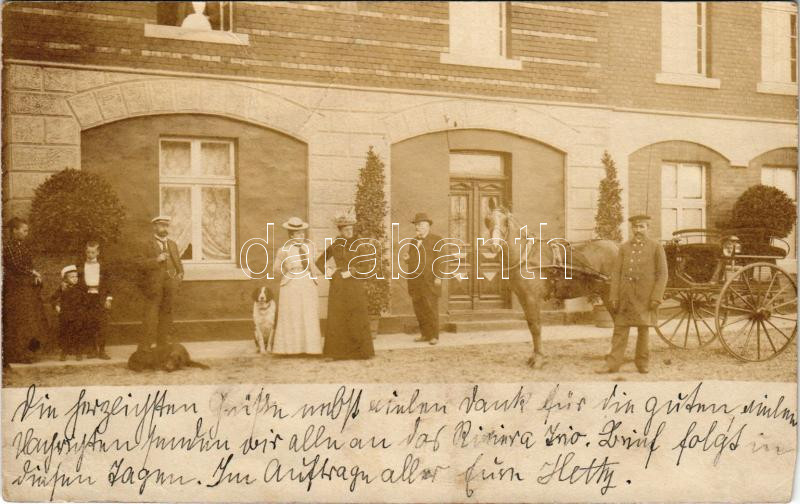 darabanth
Die herzlichsten Grüße nebst vielen Dank für die guten, vielen
Nachrichten senden wir alle an das Riviera Trio. Brief folgt in
diesen Tagen. Im Auftrage aller Eure Hetty.